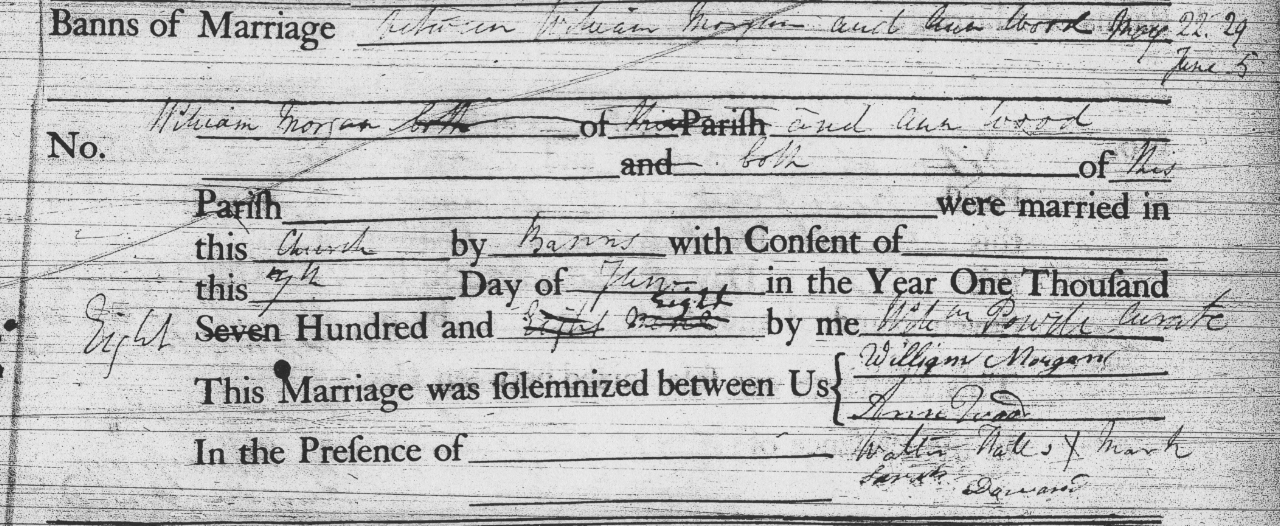 Banns of Marriage between William Morgan and Ann Wood May 22. 29
June 5
William Morgan both of this Parish and Ann Wood
No. and both of this
Pariſh were married in
this Church by Banns with Conſent of
this 7th Day of June in the Year One Thouſand
Eight
Eight Seven Hundred and Eight by me Curate
This Marriage was ſolemnized between Us { William Morgan
Ann Wood
In the Preſence of Walter X Mark
Sarah